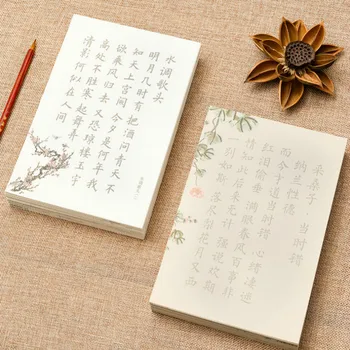 水调歌头
明月几时有把酒问青天不
知天上宫阙今夕是何年我
欲乘风归去又恐琼楼玉宇
高处不胜寒起舞弄
清影何似在人间
采桑子·当时错
纳兰性德
而今才道当时错心绪凄迷
红泪偷垂满眼春风百事非
情知此后来无计强说欢期
一别如斯落尽梨花月又西